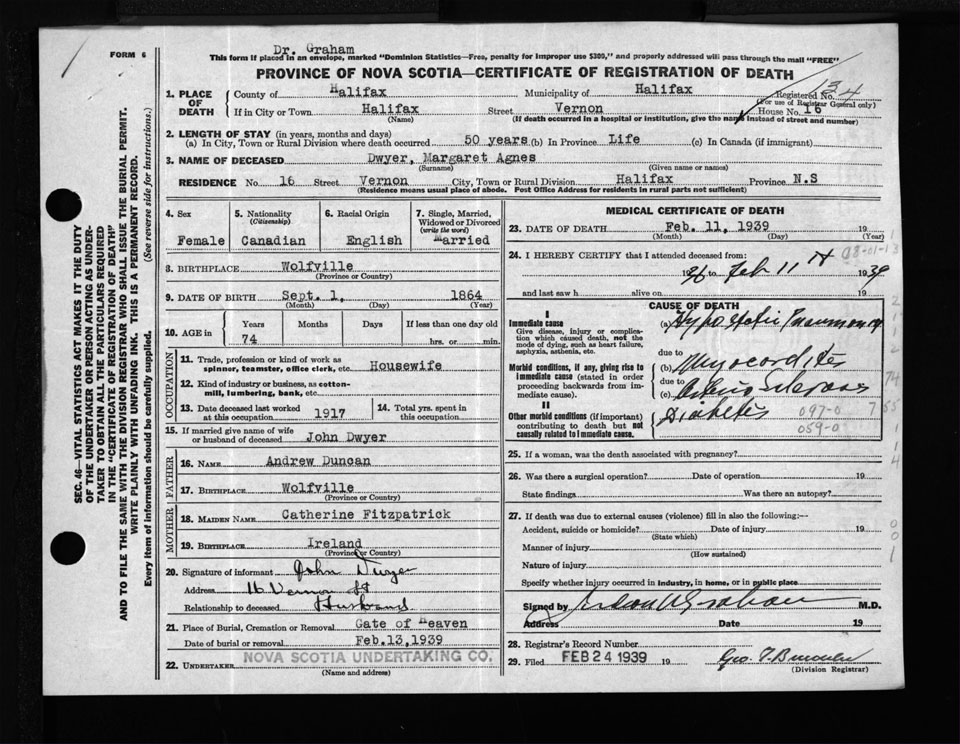 Dr. Graham
FORM 6
This form if placed in an envelope, marked "Dominion Statistics—Free, penalty for improper use $300," and properly addressed will pass through the mail "FREE"
PROVINCE OF NOVA SCOTIA—CERTIFICATE OF REGISTRATION OF DEATH
1. PLACE OF DEATH County of Halifax Municipality of Halifax Registered No. 134
(For use of Registrar General only)
If in City or Town Halifax Street Vernon House No. 16
(Name) (If death occurred in a hospital or institution, give the name instead of street and number)
2. LENGTH OF STAY (in years, months and days)
(a) In City, Town or Rural Division where death occurred 50 years (b) In Province Life (c) In Canada (if immigrant)
3. NAME OF DECEASED Dwyer, Margaret Agnes
(Surname) (Given name or names)
RESIDENCE No. 16 Street Vernon City, Town or Rural Division Halifax Province N.S
(Residence means usual place of abode. Post Office Address for residents in rural parts not sufficient)
4. Sex
Female
5. Nationality
(Citizenship)
Canadian
6. Racial Origin
English
7. Single, Married, Widowed or Divorced
(write the word)
Married
8. BIRTHPLACE Wolfville
(Province or Country)
9. DATE OF BIRTH Sept. 1, 1864
(Month) (Day) (Year)
10. AGE in Years Months Days If less than one day old
74 hrs. or min.
OCCUPATION
11. Trade, profession or kind of work as
spinner, teamster, office clerk, etc. Housewife
12. Kind of industry or business, as cotton-
mill, lumbering, bank, etc.
13. Date deceased last worked
at this occupation 1917
14. Total yrs. spent in
this occupation
15. If married give name of wife
or husband of deceased John Dwyer
FATHER
16. NAME Andrew Duncan
17. BIRTHPLACE Wolfville
(Province or Country)
MOTHER
18. MAIDEN NAME Catherine Fitzpatrick
19. BIRTHPLACE Ireland
(Province or Country)
20. Signature of informant John Dwyer
Address 16 Vernon St
Relationship to deceased Husband
21. Place of Burial, Cremation or Removal Gate of Heaven
Date of burial or removal Feb.13,1939
22. UNDERTAKER NOVA SCOTIA UNDERTAKING CO.
(Name and address)
MEDICAL CERTIFICATE OF DEATH
23. DATE OF DEATH Feb. 11, 1939 19
(Month) (Day) (Year)
24. I HEREBY CERTIFY that I attended deceased from:
1936 to Feb 11th 1939
and last saw h alive on 19
CAUSE OF DEATH
I
Immediate cause
Give disease, injury or complica-
tion which caused death, not the
mode of dying, such as heart failure,
asphyxia, asthenia, etc.
(a) Hypostatic Pneumonia
due to
Morbid conditions, if any, giving rise to
immediate cause (stated in order
proceeding backwards from im-
mediate cause).
(b) Myocarditis
due to
(c) Arterio Sclerosis
II
Other morbid conditions (if important)
contributing to death but not
causally related to immediate cause.
Diabetes
097-0
059-0
25. If a woman, was the death associated with pregnancy?
26. Was there a surgical operation? Date of operation 19
State findings Was there an autopsy?
27. If death was due to external causes (violence) fill in also the following:—
Accident, suicide or homicide? Date of injury 19
(State which)
Manner of injury
(How sustained)
Nature of injury
Specify whether injury occurred in industry, in home, or in public place
Signed by Graham M.D.
Address Date 19
28. Registrar's Record Number
29. Filed FEB 24 1939 19
(Division Registrar)
SEC. 46—VITAL STATISTICS ACT MAKES IT THE DUTY
OF THE UNDERTAKER OR PERSON ACTING AS UNDER-
TAKER TO OBTAIN ALL THE PARTICULARS REQUIRED
IN THE "CERTIFICATE OF REGISTRATION OF DEATH"
AND TO FILE THE SAME WITH THE DIVISION REGISTRAR WHO SHALL ISSUE THE BURIAL PERMIT.
WRITE PLAINLY WITH UNFADING INK. THIS IS A PERMANENT RECORD.
Every item of information should be carefully supplied. (See reverse side for instructions.)